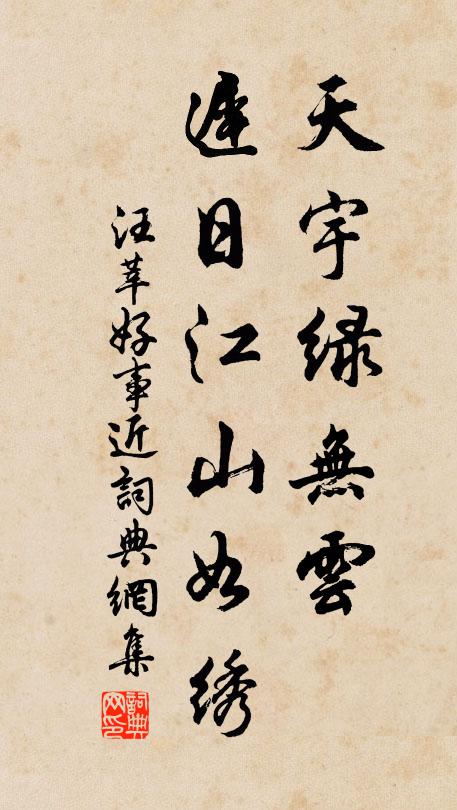 天宇绿無雲
遲日江山如绣
汪莘好事近詞典網集
詞典网印